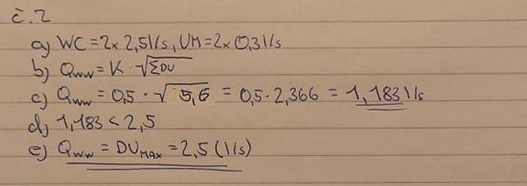 č.2
a) WC = 2x 2,5 l/s, UM = 2x 0,3 l/s
b) Qww = K · √ΣDU
c) Qww = 0,5 · √5,6 = 0,5 · 2,366 = 1,183 l/s
d) 1,183 < 2,5
e) Qww = DU MAX = 2,5 (l/s)